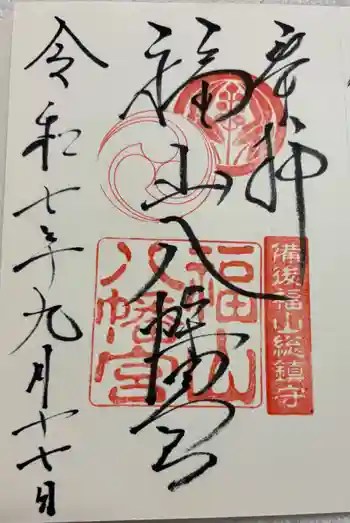 奉拝
福山八幡宮
備後福山総鎮守
福山
八幡宮
令和七年九月十七日